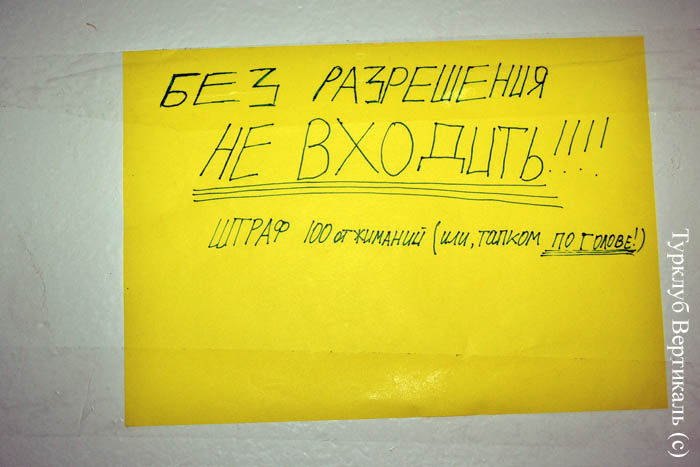 БЕЗ РАЗРЕШЕНИЯ
НЕ ВХОДИТЬ!!!!
ШТРАФ 100 отжиманий (или, тапком ПО ГОЛОВЕ!)
Турклуб Вертикаль (c)